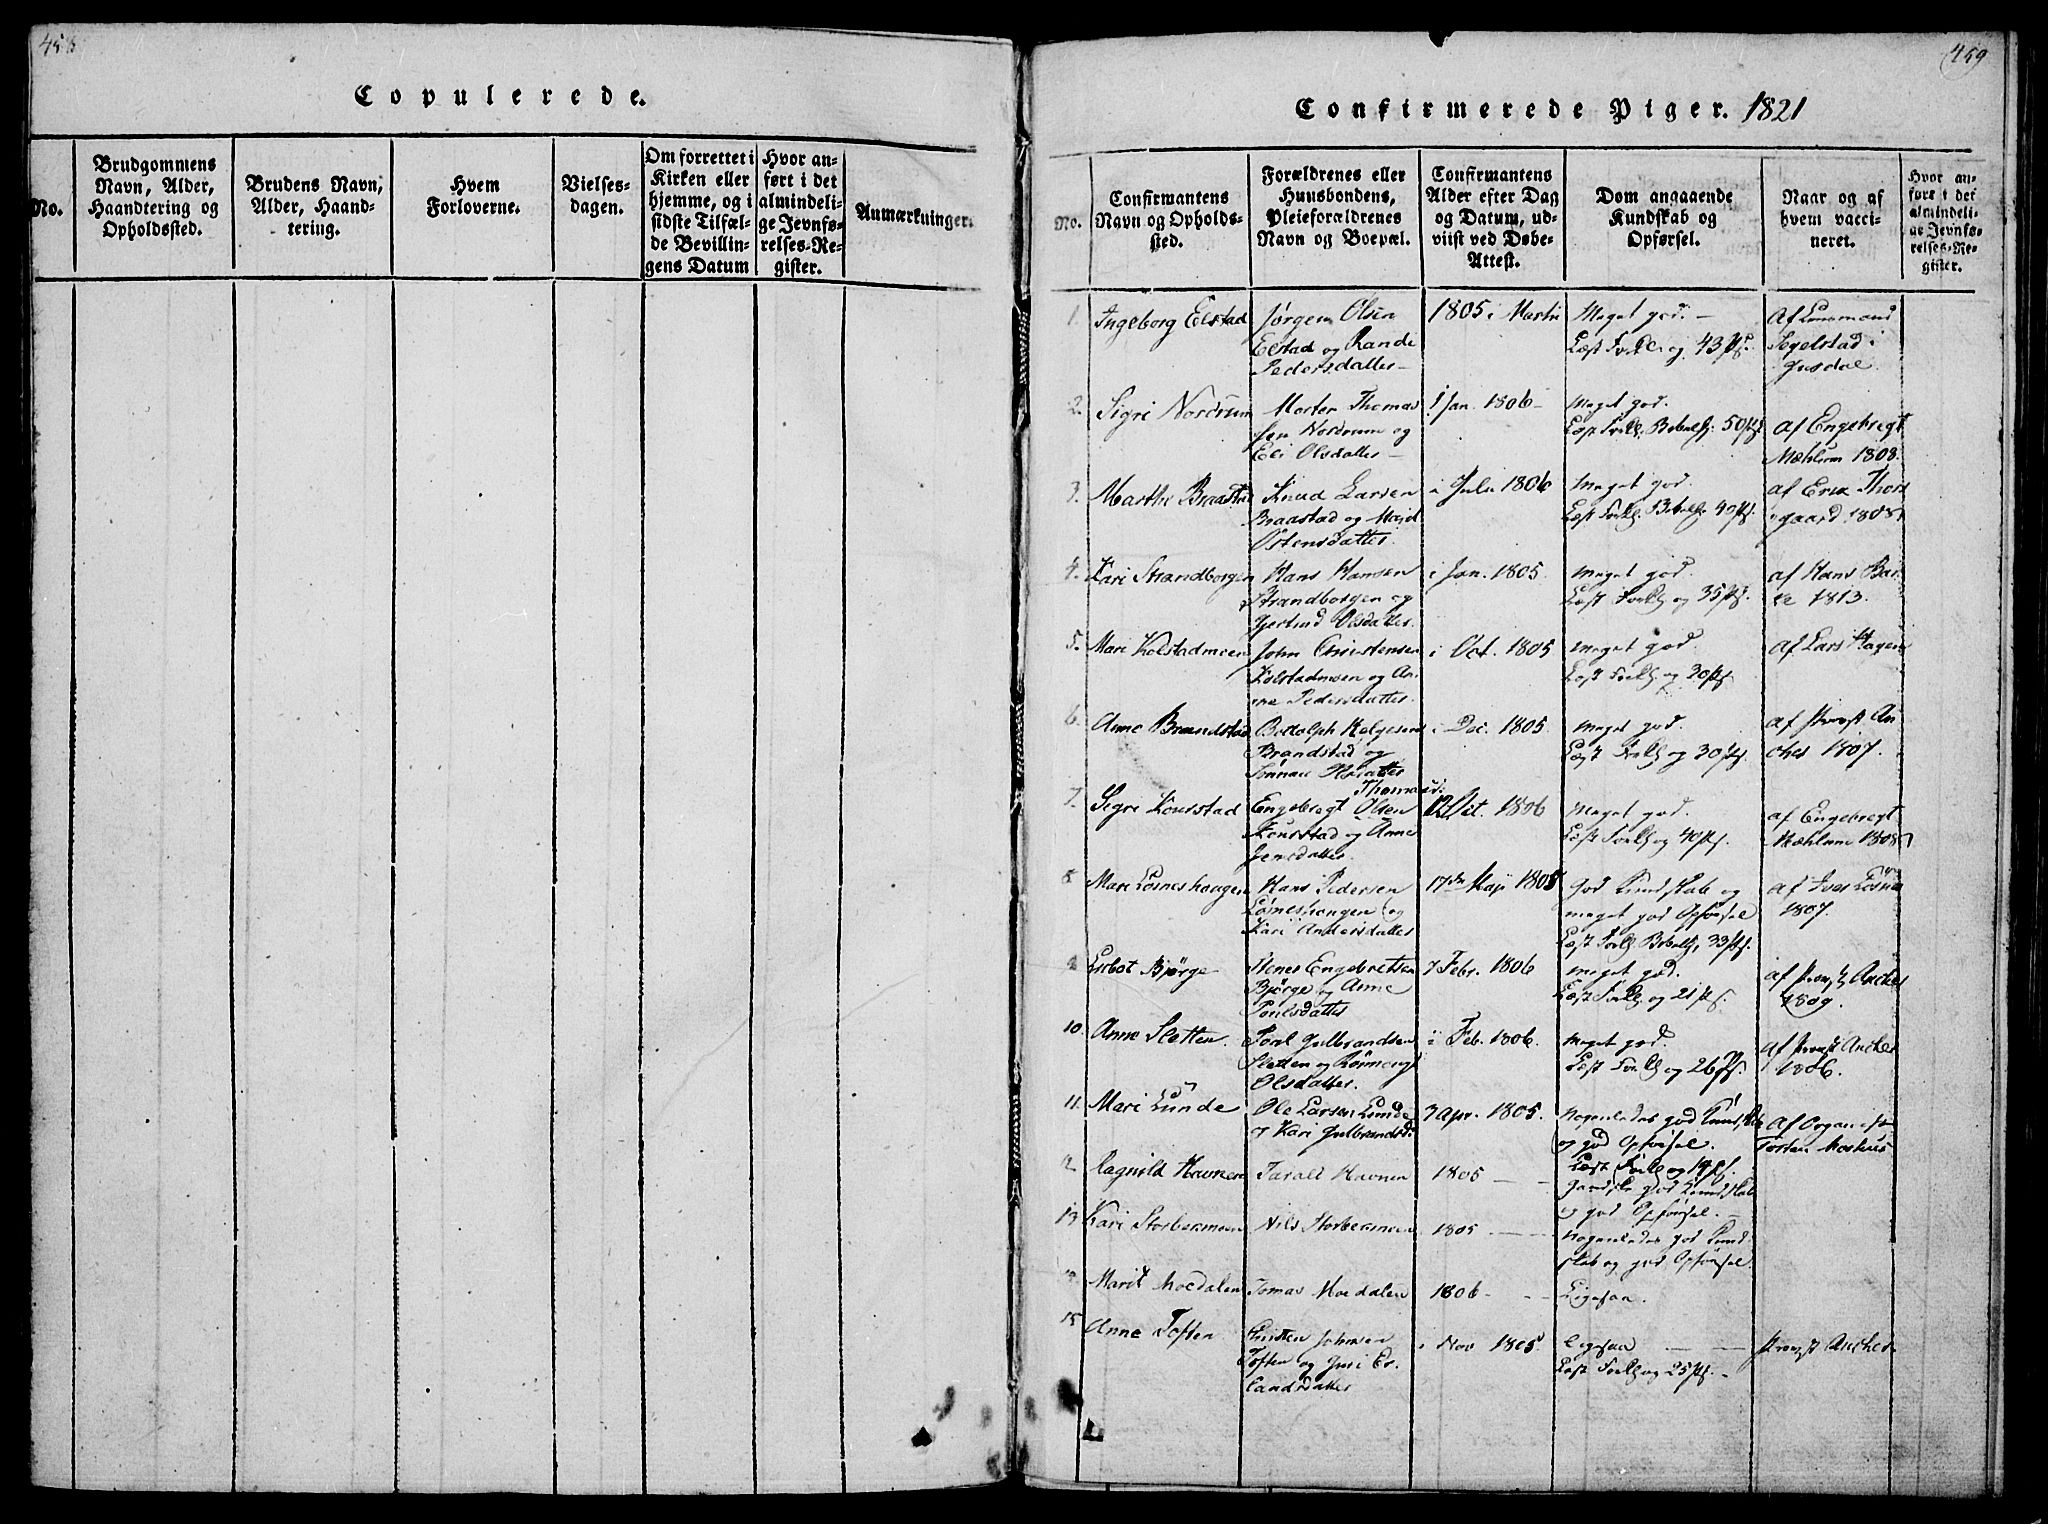 458
Copulerede.
No.
Brudgommens
Navn, Alder,
Haandtering og
Opholdssted.
Brudens Navn,
Alder, Haand-
tering.
Hvem
Forloverne.
Vielses-
dagen.
Om forrettet i
Kirken eller
hjemme, og i
sidste Tilfæl-
de Bevillin-
gens Datum
Hvor an-
ført i det
almindeli-
ge Jevnfø-
relses-Re-
gister.
Anmærkninger.
459
Confirmerede Piger. 1821
No.
Confirmantens
Navn og Opholds-
sted.
Forældrenes eller
Huusbondens,
Pleieforældrenes
Navn og Boepæl.
Confirmantens
Alder efter Dag
og Datum, ud-
viist ved Døbe-
Attest.
Dom angaaende
Kundskab og
Opførsel.
Naar og af
hvem vacci-
neret.
Hvor an-
føre i det
almindeli-
ge Jevnfø-
relses-Re-
gister.
1. Ingeborg Elstad
Jørgen Olsen
Elstad og Rande
Pedersdatter
1805 i Martii
Meget god.
Læst Forkl. og 43 Ps.
Af
Segelstad i
Gusdal
2. Sigri Nordrum
Morten Thomas
sen Nordrum og
Eli Olsdatter
i Jan. 1806
Meget god.
Læst Forkl. Bibelh. 50 Ps.
af Engebregt
Mæhlum 1808.
3. Marthe Braastad
Knud Larsen
Braastad og Marit
Østensdatter
i Julii 1806
Meget god.
Læst Forkl. Bibelh. 40 Ps.
af Erik Thors
gaard 1808
4. Kari Strandborgen
Hans Hansen
Strandborgen og
Gjertrud Olsdatter
i Jan. 1805
Meget god.
Læst Forkl. og 35 Ps.
af Hans Bak
ke 1813.
5. Mari Kolstadmoen
John Christensen
Kolstadmoen og An
ne Pedersdatter
i Oct. 1805
Meget god.
Læst Forkl. og 20 Ps.
af Lars Hagen
6. Anne Brandstad
Bottolph Helgesen
Brandstad og
i Dec. 1805
Meget god.
Læst Forkl. og 30 Ps.
af Provst An
cher 1807.
7. Sigri Kourstad
Engebregt Thomas Olsen
Kourstad og Anne
Jensdatter
12 Oct. 1806
Meget god.
Læst Forkl. og 40 Ps.
af Engebregt
Mæhlum 1808
8 Mari Løsneshaugen
Hans Pedersen
Løsneshaugen og
Kari Andersdatter
17de Maji 1805
God Kundskab og
meget god Opførsel
Læst Forkl. Bibelh. 33 Ps.
af Iver Løsnæs
1807.
9 Lisbet Bjørge
Engebretsen
Bjørge og Anne
Poulsdatter
7 Febr. 1806
Meget god.
Læst Forkl. og 21 Ps.
af Provst Ancher
1809.
10. Anne Sletten.
Poul Gulbrandsen
Sletten og Rønnaug
Olsdatter.
i Feb. 1806.
Meget god.
Læst Forkl. og 26 Ps.
af Provst Ancher
1806.
11. Mari Lunde
Ole Larsen Lunde
og Kari Gulbrandsd.
7 Apr. 1805.
Nogenledes god Kundskab
og god Opførsel.
Læst Forkl. og 19 Ps.
af Organist
Torsten Moshuus
12 Ragnild Havnen
Tarald Havnen
1805
Ganske god Kundskab
og god Opførsel.
13 Kari Storbermoen
Nils Storbermoen
1805
Nogenledes god Kund
skab og god Opførsel.
14 Marit Moedalen
Tomas Moedalen
1806
Ligesaa.
15 Anne Toften
Christen Johnsen
Toften og Guri Er
landsdatter
i Nov 1805
Ligesaa
Læst Forkl. og 25 Ps.
Provst Ancher